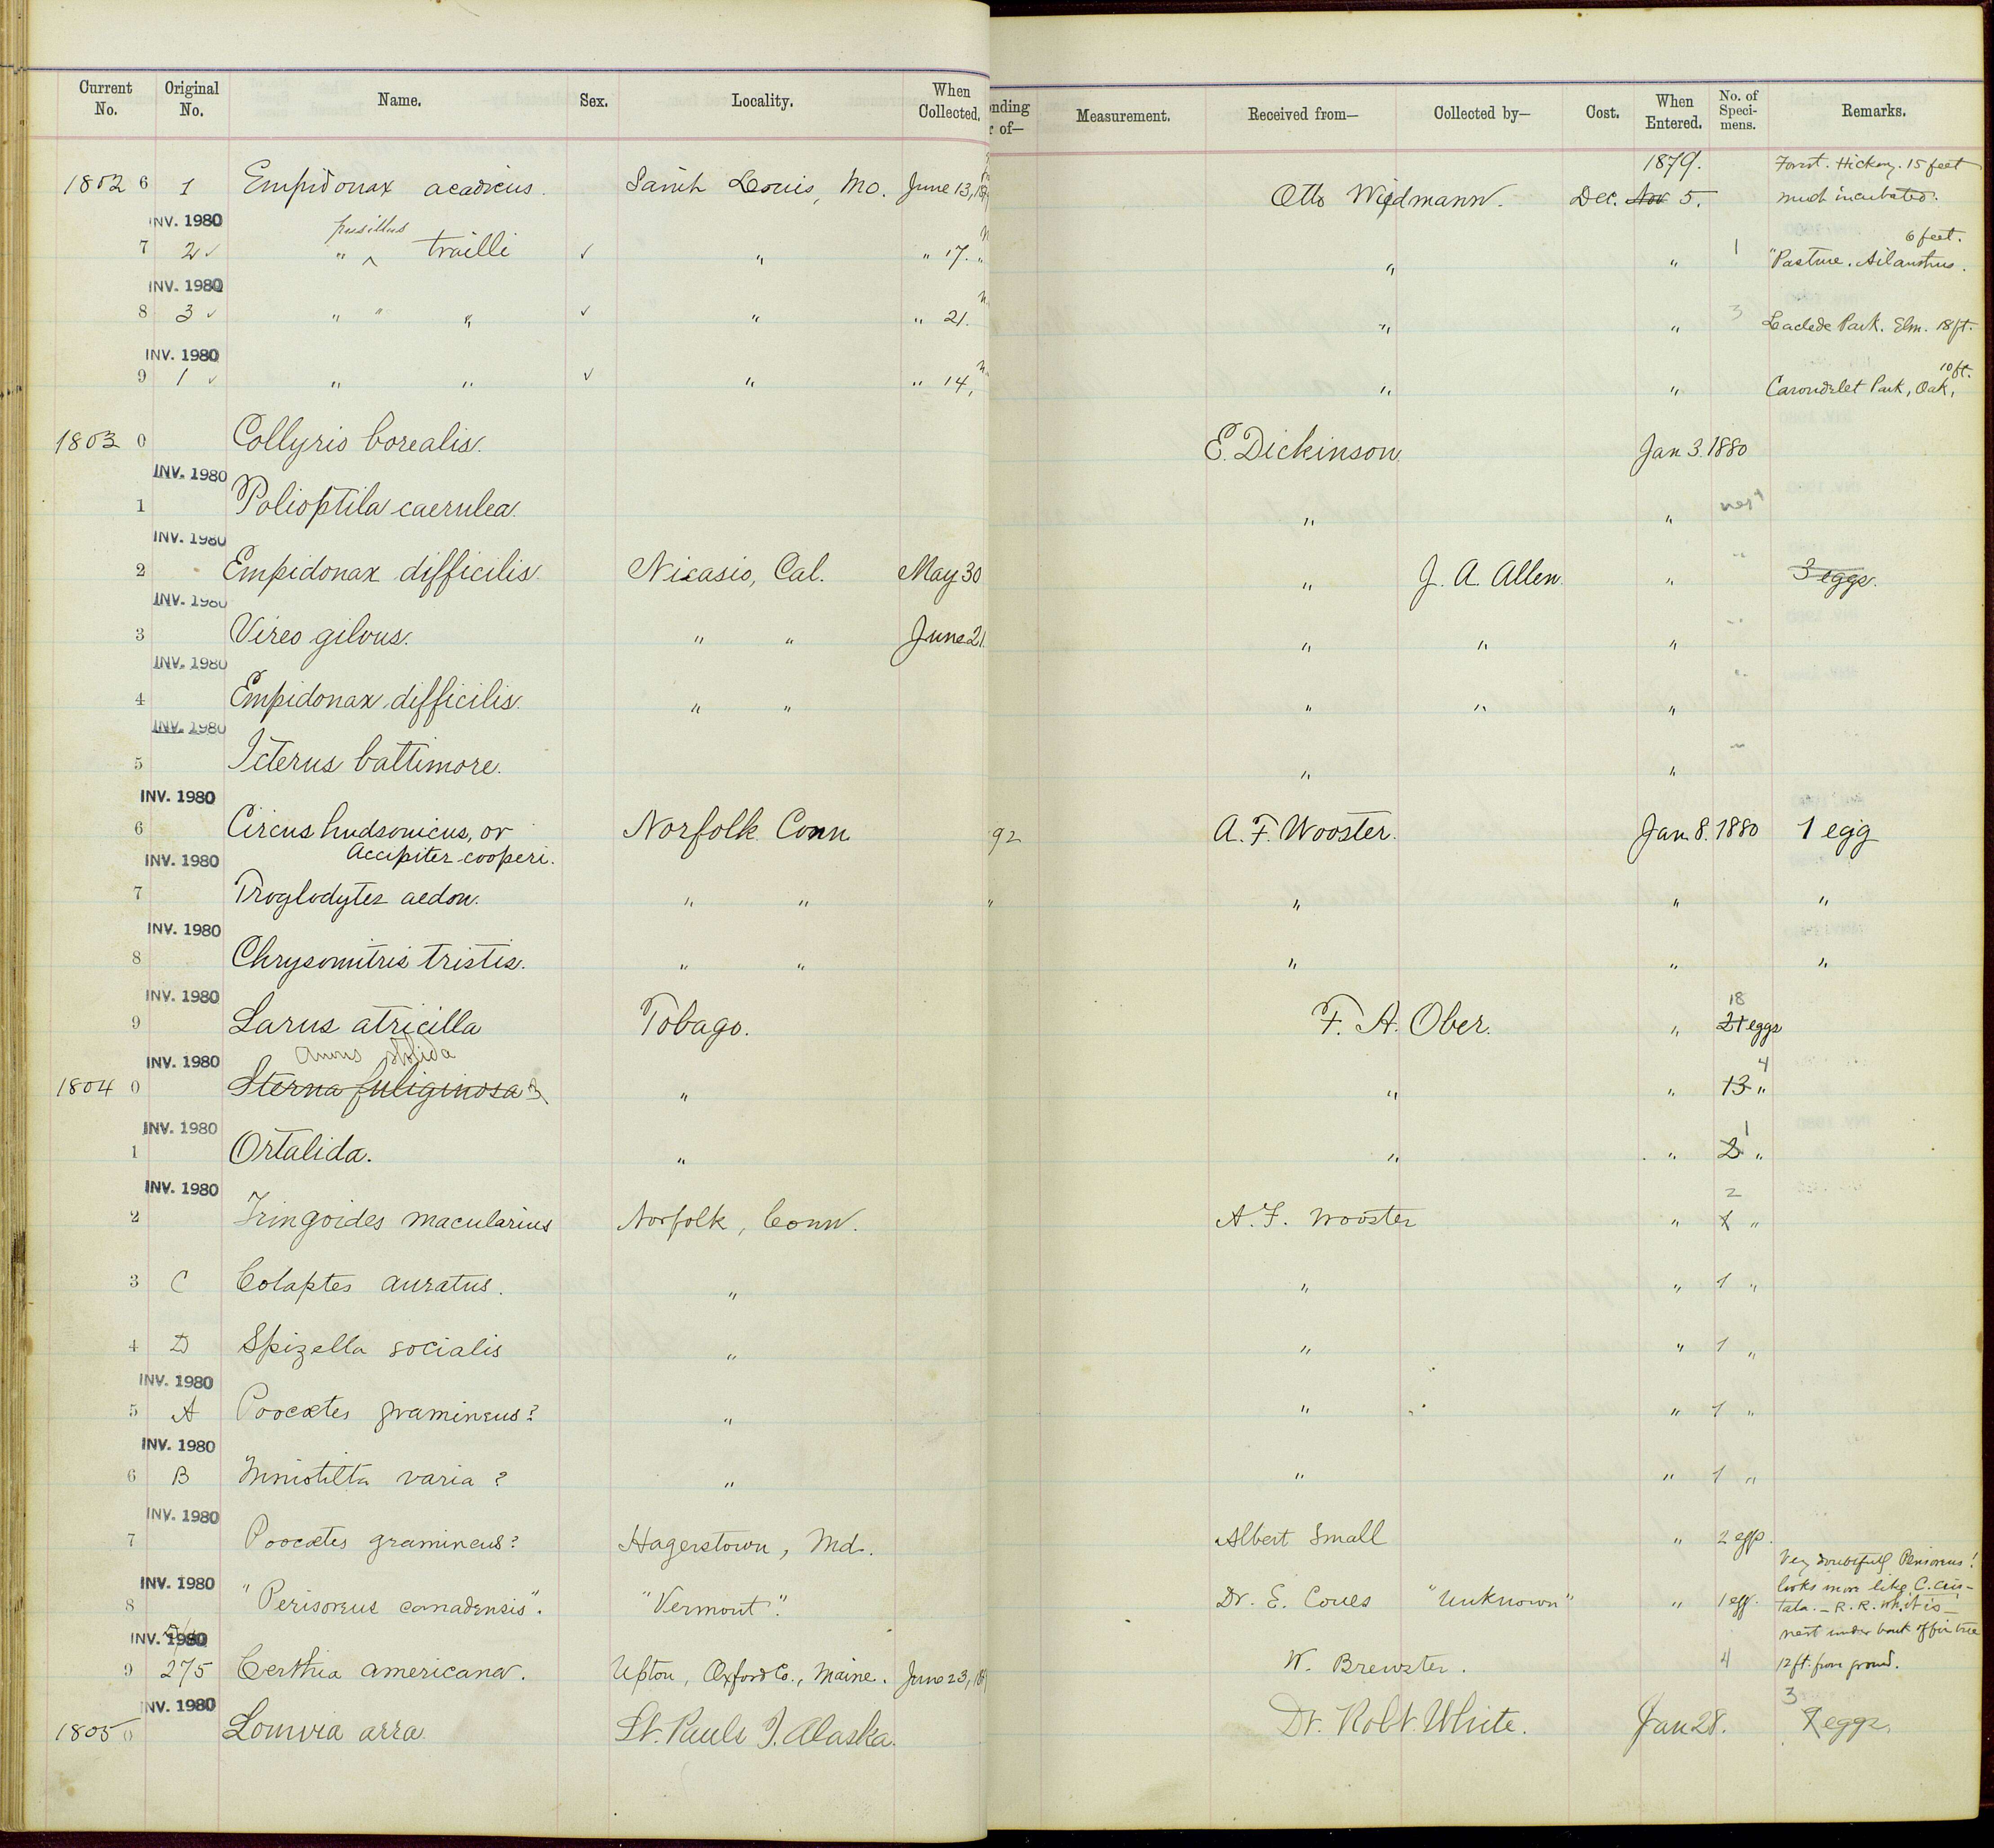 Current No. Original No. Name. Sex. Locality. When Collected. nding r of— Measurement. Received from— Collected by— Cost. When Entered. No. of Speci-mens. Remarks.
1879. Forest. Hickory. 15 feet
18026 1 Empidonax acadicus. Saint Louis, Mo. June 13, Otto Widmann. Dec. Nov 5. much incubated.
INV. 1980
pusillus 6 feet.
7 2 ✓ " ^ trailli ✓ " " 17. " " " 1 "Pasture. Ailanthus.
INV. 1980
8 3 ✓ " " " ✓ " " 21. " " 3 Laclede Park. Elm. 18 ft.
INV. 1980
10 ft.
9 1 ✓ " " ✓ " " 14, " " Carondelet Park, Oak,
18030 Collyrio borealis. E. Dickinson. Jan 3. 1880
INV. 1980
1 Polioptila caerulea. " " nest
INV. 1980
2 Empidonax difficilis. Nicasio, Cal. May 30 " J. A. Allen " " 3 eggs.
INV. 1980
3 Vireo gilvus. " " June 21 " " " "
INV. 1980
4 Empidonax difficilis. " " " " " "
INV. 1980
5 Icterus baltimore. " " "
INV. 1980
6 Circus hudsonicus, or Norfolk Conn 92 A. F. Wooster. Jan. 8. 1880 1 egg
Accipiter cooperi.
INV. 1980
7 Troglodytes aedon. " " " " " "
INV. 1980
8 Chrysomitris tristis. " " " " "
INV. 1980
18
9 Larus atricilla Tobago. F. A. Ober. " 21 eggs
Anous stolida
INV. 1980
4
18040 Sterna fuliginosa " " " 13 "
INV. 1980
1
1 Ortalida. " " " 2 "
INV. 1980
2
2 Tringoides macularius Norfolk, Conn. A. F. Wooster " 1 "
3 C Colaptes auratus. " " " 1 "
4 D Spizella socialis " " " 1 "
INV. 1980
5 A Poocætes gramineus? " " " 1 "
INV. 1980
6 B Mniotilta varia? " " " 1 "
INV. 1980
7 Poocætes gramineus? Hagerstown, Md. Albert Small " 2 eggs.
Very doubtful Perisoreus!
INV. 1980
looks more like C. cris-
8 "Perisoreus canadensis". "Vermont". Dr. E. Coues "Unknown" " 1 egg. tata. – R. R.
INV. 1980
nest under bark of fir tree
9 275 Certhia americana. Upton, Oxford Co., Maine. June 23, W. Brewster. 4 12 ft. from ground.
INV. 1980
3
18050 Lomvia arra St. Pauls I. Alaska. Dr. Robt. White. Jan 28. eggs.